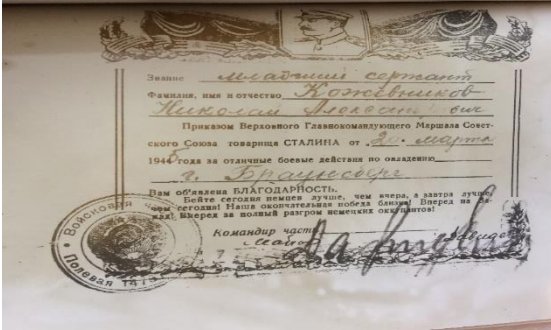 Звание младший сержант
Фамилия, имя и отчество Кожевников
Николай
Приказом Верховного Главнокомандующего Маршала Совет-
ского Союза товарища СТАЛИНА от 20 марта
1945 года за отличные боевые действия по овладению
г. Браунсберг
Вам об'явлена БЛАГОДАРНОСТЬ.
Бейте сегодня немцев лучше, чем вчера, а завтра лучше,
чем сегодня! Наша окончательная победа близка! Вперед на За-
пад! Вперед за полный разгром немецких оккупантов!
Командир части
Войсковая часть
Полевая